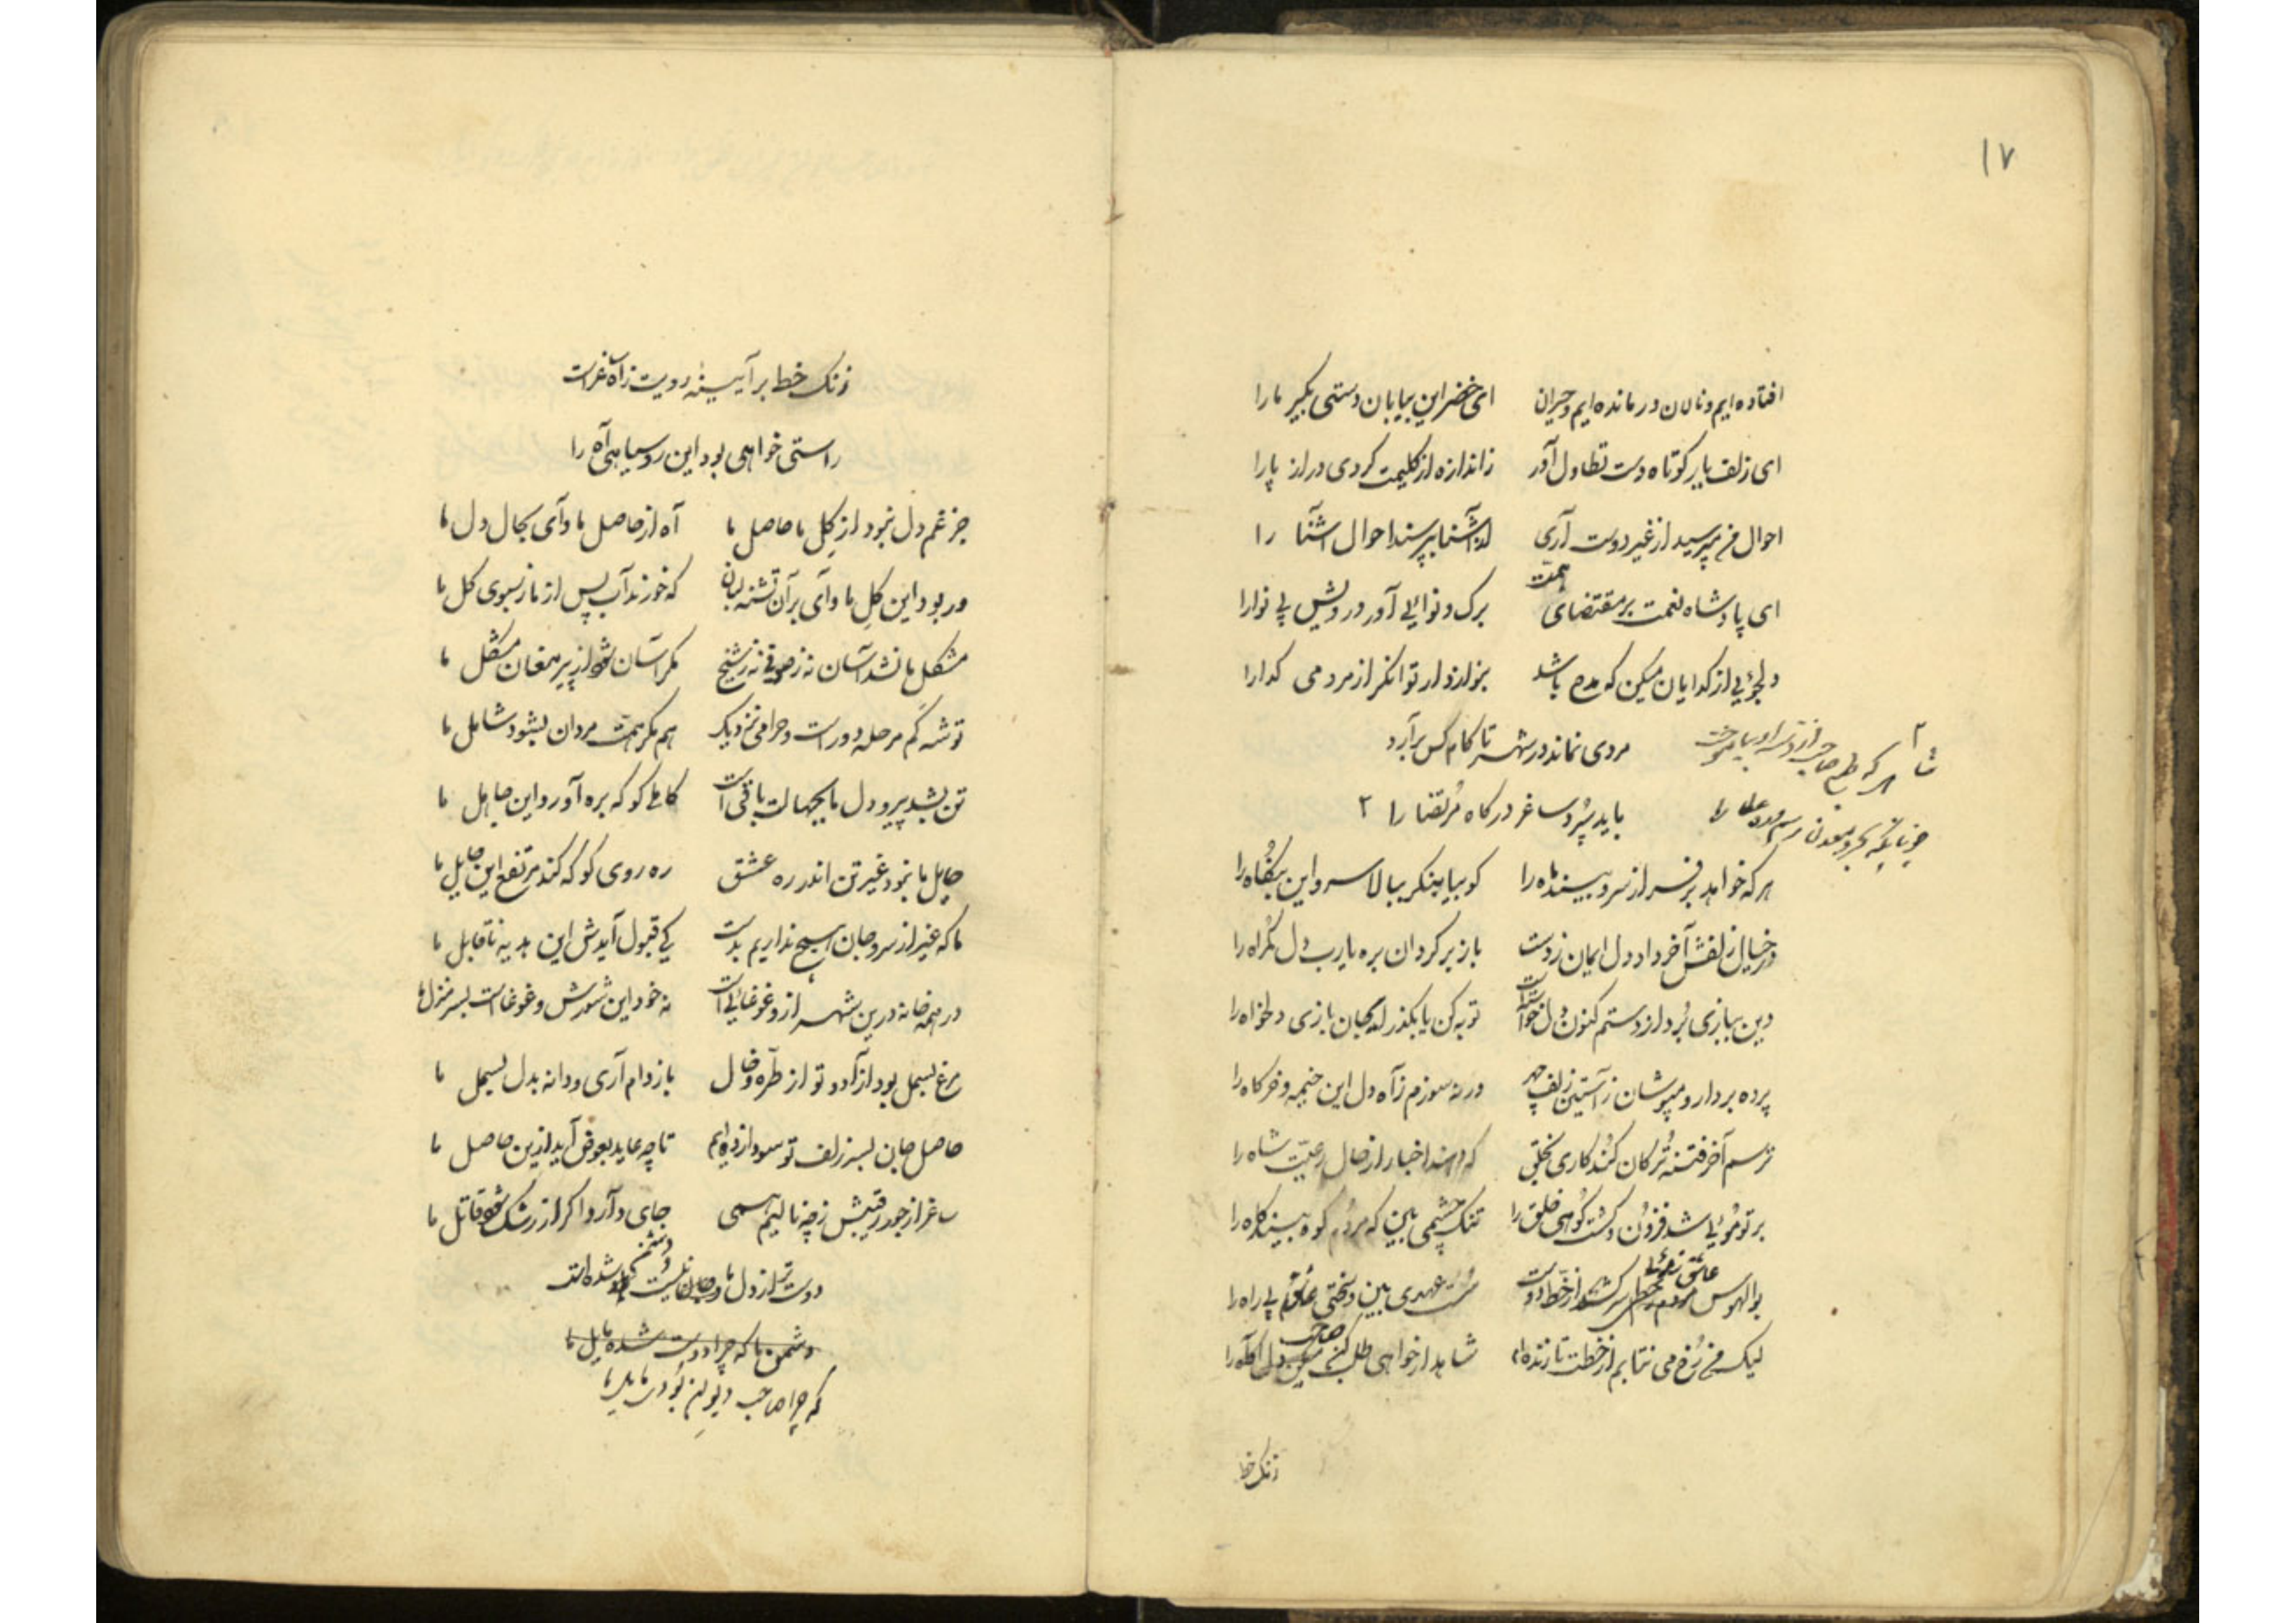 ۱۷
افتاده ایم و نالان درمانده ایم و حیران ای خضر این بیابان دستی بگیر ما را
ای زلف یار کوتاه دست تطاول آور ز اندازه از گلیمت کردی دراز پا را
احوال من بپرسید از غیر دوست آری از آشنا بپرسند احوال آشنا را
ای پادشاه نعمت بر مقتضای همت برک و نوایی آور درویش بی نوا را
دلجوئی از کدایان مسکین که باشد توانکر از مردمی کدا را
مردی نماند در شهر تا کام کس برآرد
هر که طبع صاحب از او بیاموخت
باید سپرد ساغر درکاه مرتضا را ۲
هر که خواهد بر فراز سرو بیند ماه را کو بیا بنکر ببالا سرو این را
در خیال زلفش آخر داد دل ایمان ز دست باز برکردان بره یارب دل کمراه را
دین ببازی برد از دستم کنون دل خواسته است توبه کن یا بکذر از جان بازی دلخواه را
پرده بردار و مپوشان ز آستین زلف چهر ورنه سوزم ز آه دل این خیمه و خرکاه را
ترسم آخر فتنه ترکان کند کاری بخلق که دهند اخبار از حال رعیت شاه را
بر تو موئی شد فزون و کشت کوهی خلق را تنک چشمی بین که مردم کوه بیند کاه را
بوالهوس از خط دوست سست عهدی بین و سختی بی راه را
لیک من رخ می نتابم از خطت تا زنده ام شاهد ار خواهی طلب کن صاحب دل آکاه را
زنک خط
زنک خط بر آیینه رویت ز آه ساغر است
راستی خواهی بود این روسیاهی آه را
جز غم دل نبود از کل ما حاصل ما آه از حاصل ما وای بحال دل ما
ور بود این کل ما وای بر آن تشنه لبان که خورند آب پس از ما ز سبوی کل ما
مشکل ما نشد آسان نه ز صوفی نه ز شیخ مکر آسان شود از پیر مغان مشکل ما
توشه کم مرحله دور است و حرامی نزدیک هم مکر همت مردان بشود شامل ما
تن بشد پیر و دل ما بجهالت باقی است کاملی کو که بره آورد این جاهل ما
حایل ما نبود غیر تن اندر ره عشق ره روی کو که کند مرتفع این حایل ما
ما که غیر از سر و جان هیچ نداریم بدست کی قبول آیدش این هدیه ناقابل ما
در همه خانه درین شهر از و غوغائی است نه خود این شورش و غوغاست بسر منزل ما
مرغ بسمل بود از آدو تو از طره و خال باز دام آری و دانه بدل بسمل ما
حاصل جان بسر زلف تو سودا زده ایم تا چه عاید بعوض آید ازین حاصل ما
ساغر از جور رقیبش ز چه نالیم همی جای دارد اکر از رشک شود قاتل ما
دوست تر از دل ما و جان نیست دشمن شده است
دشمن ما که چرا دوست شده مایل ما
که چرا صاحب دیوان بود مایل ما